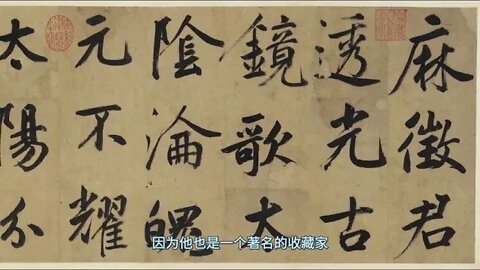 麻徵君
透光古
鏡歌大
陰淪魄
元不耀
太陽分
因为他也是一个著名的收藏家